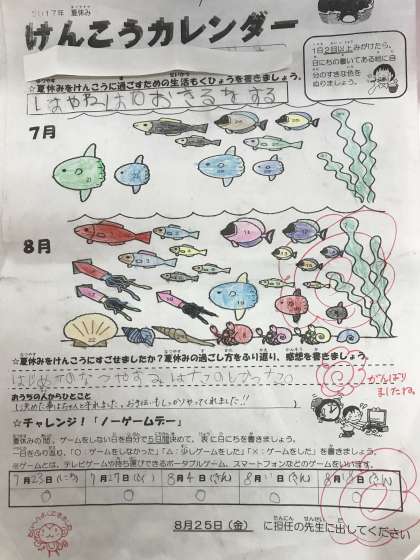 2017年 夏休み
けんこうカレンダー
1日2回以上みがけたら、
日にちの書いてある絵に自
分のすきな色を
ぬりましょう。
☆夏休みをけんこうに過ごすための生活もくひょうを書きましょう。
はやねはやおきをする
7月
8月
☆夏休みをけんこうにすごせましたか？夏休みの過ごし方をふり返り、感想を書きましょう。
はじめてのなつやすみはたのしかった
がんばり
ましたね。
おうちの人からひとこと
☆チャレンジ！「ノーゲームデー」
夏休みの間、ゲームをしない日を自分で5日間決めて、表に日にちを書きましょう。
一日をふり返り、「○：ゲームをしなかった」「△：少しゲームをした」「×：ゲームをした」を書きましょう。
※ゲームとは、テレビゲームや持ち運びできるポータブルゲーム、スマートフォンなどのゲームをいいます。
7月23日(にち) 7月27日 8月4日(きん) 8月 8月
○ ○ ○ ○ ○
8月25日（金） に担任の先生に出してください